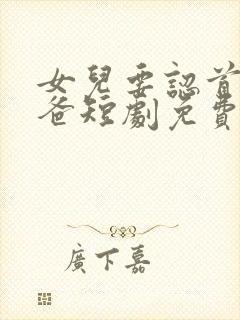 女兒要認首
爸短劇免費
廣下嘉